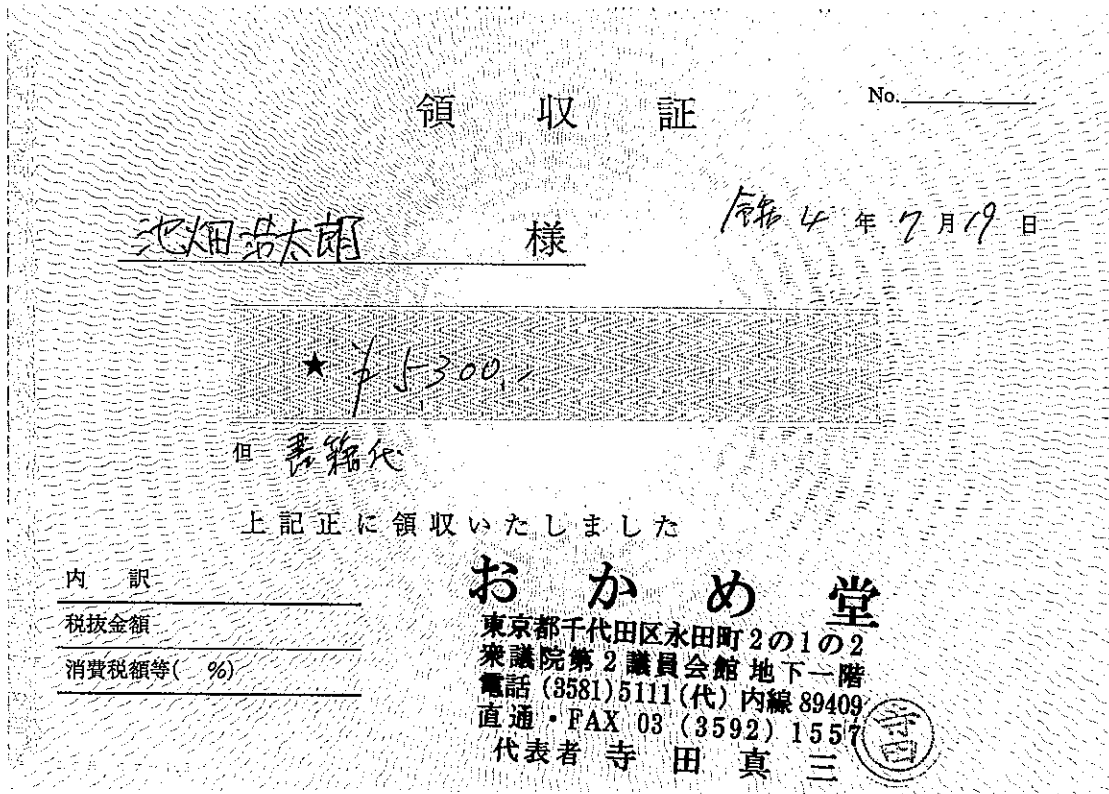 領収証
No.
池畑浩太朗 様
令和4年7月19日
★ ¥5300.-
但 書籍代
上記正に領収いたしました
内 訳
税抜金額
消費税額等( %)
おかめ堂
東京都千代田区永田町2の1の2
衆議院第2議員会館地下一階
電話(3581)5111(代)内線89409
直通・FAX 03(3592)1557
代表者 寺田真三
寺田